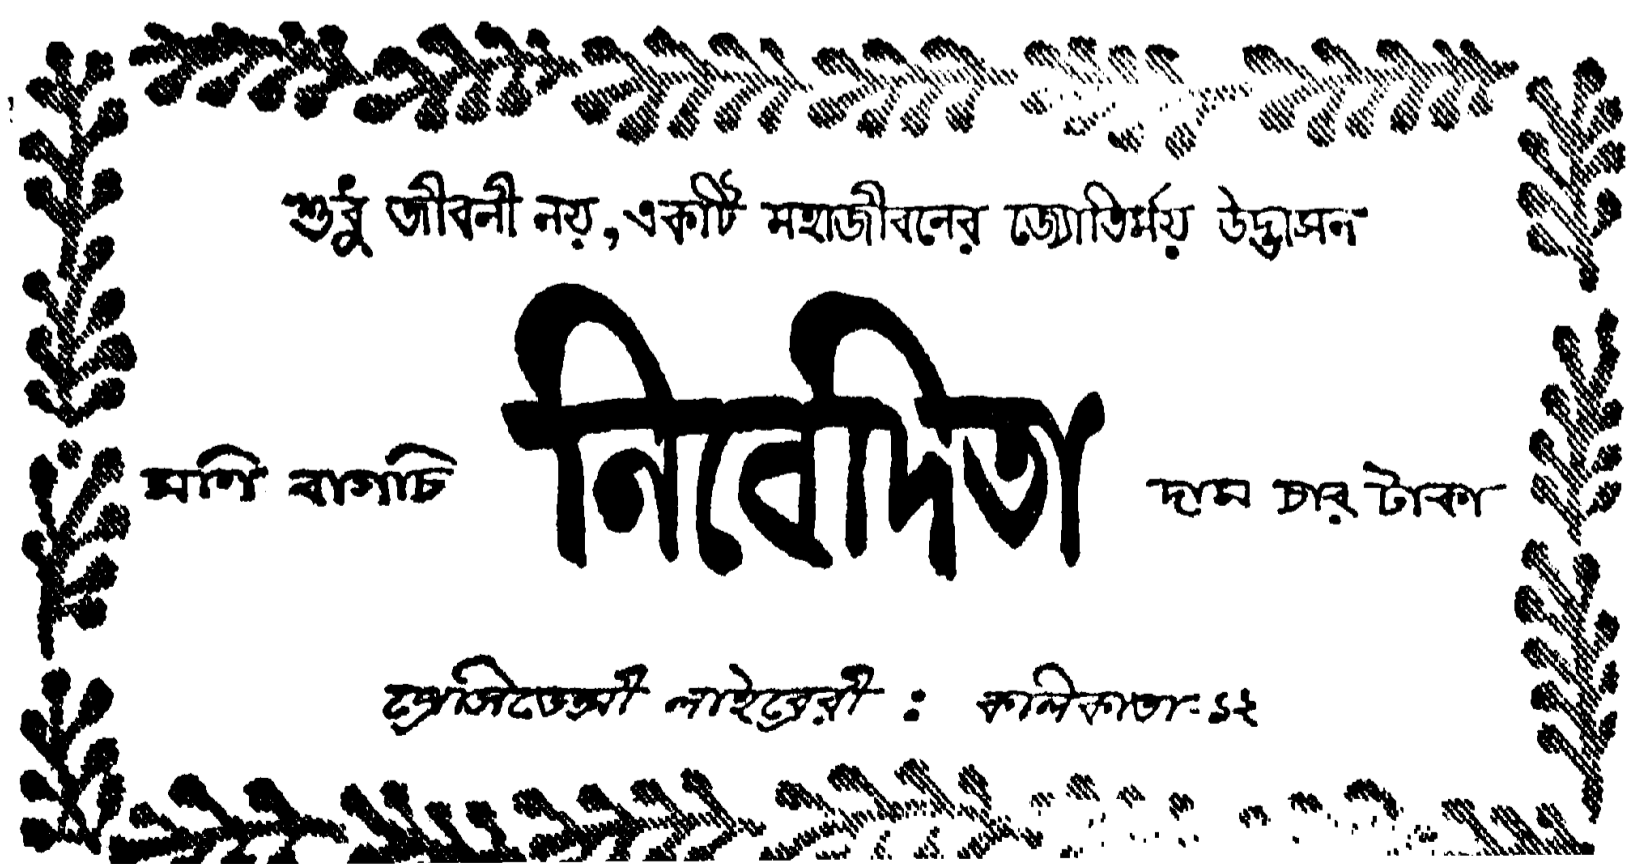 শুধু জীবনী নয়, একটি মহাজীবনের জ্যোতির্ময় উদ্ভাসন
নিবেদিতা
মণি বাগচি
দাম চার টাকা
প্রেসিডেন্সী লাইব্রেরী : কলিকাতা-১২